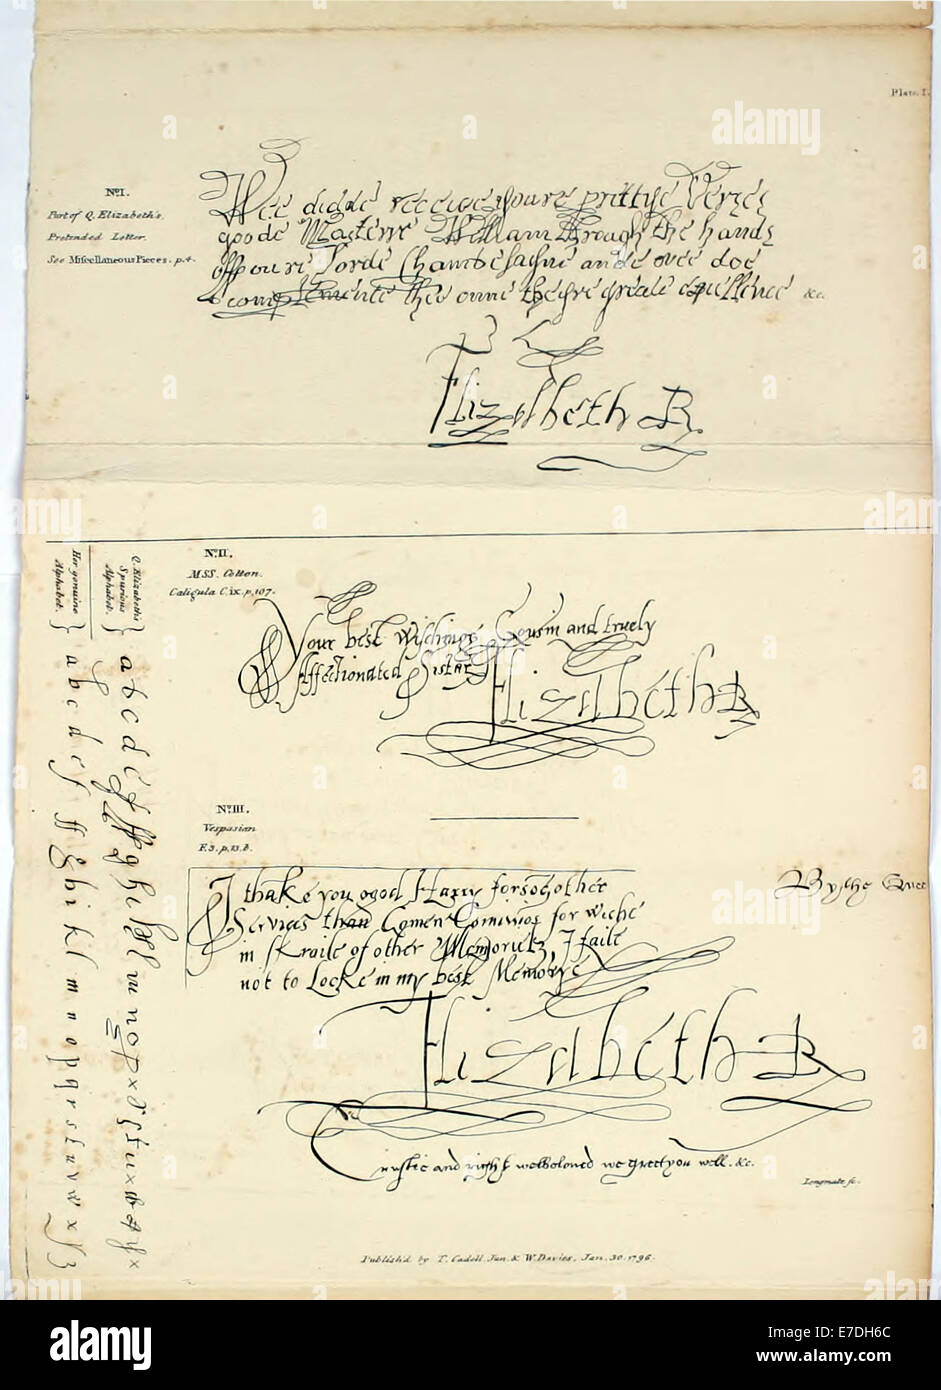 Plate. I.
No. I.
Part of Q. Elizabeth's.
Pretended Letter.
See Miscellaneous Pieces. p. 4.
Wee didde receive youre prettye Verses
goode Masterre William through the hands
off oure Lorde Chamberlayne ande wee doe
complemente thee onne theyre greate excellence &c.
Elizabeth R
No. II.
MSS. Cotton.
Caligula C. ix. p. 107.
Your best wisching Cousin and truely
Affectionated Sistar
Elizabeth R
Q. Elizabeth's
Spurious
Alphabet.
Her genuine
Alphabet.
No. III.
Vespasian
F. 3. p. 13. b.
By the Quee
I thanke you good Harry for
in of other I faile
not to Locke in my best Memorye
Elizabeth R
and right welbeloved we greet you well. &c.
Longmate sc.
Publish'd by T. Cadell, Jun. & W. Davies, Jan. 30. 1796.
a alamy
alamy
Image ID: E7DH6C
www.alamy.com